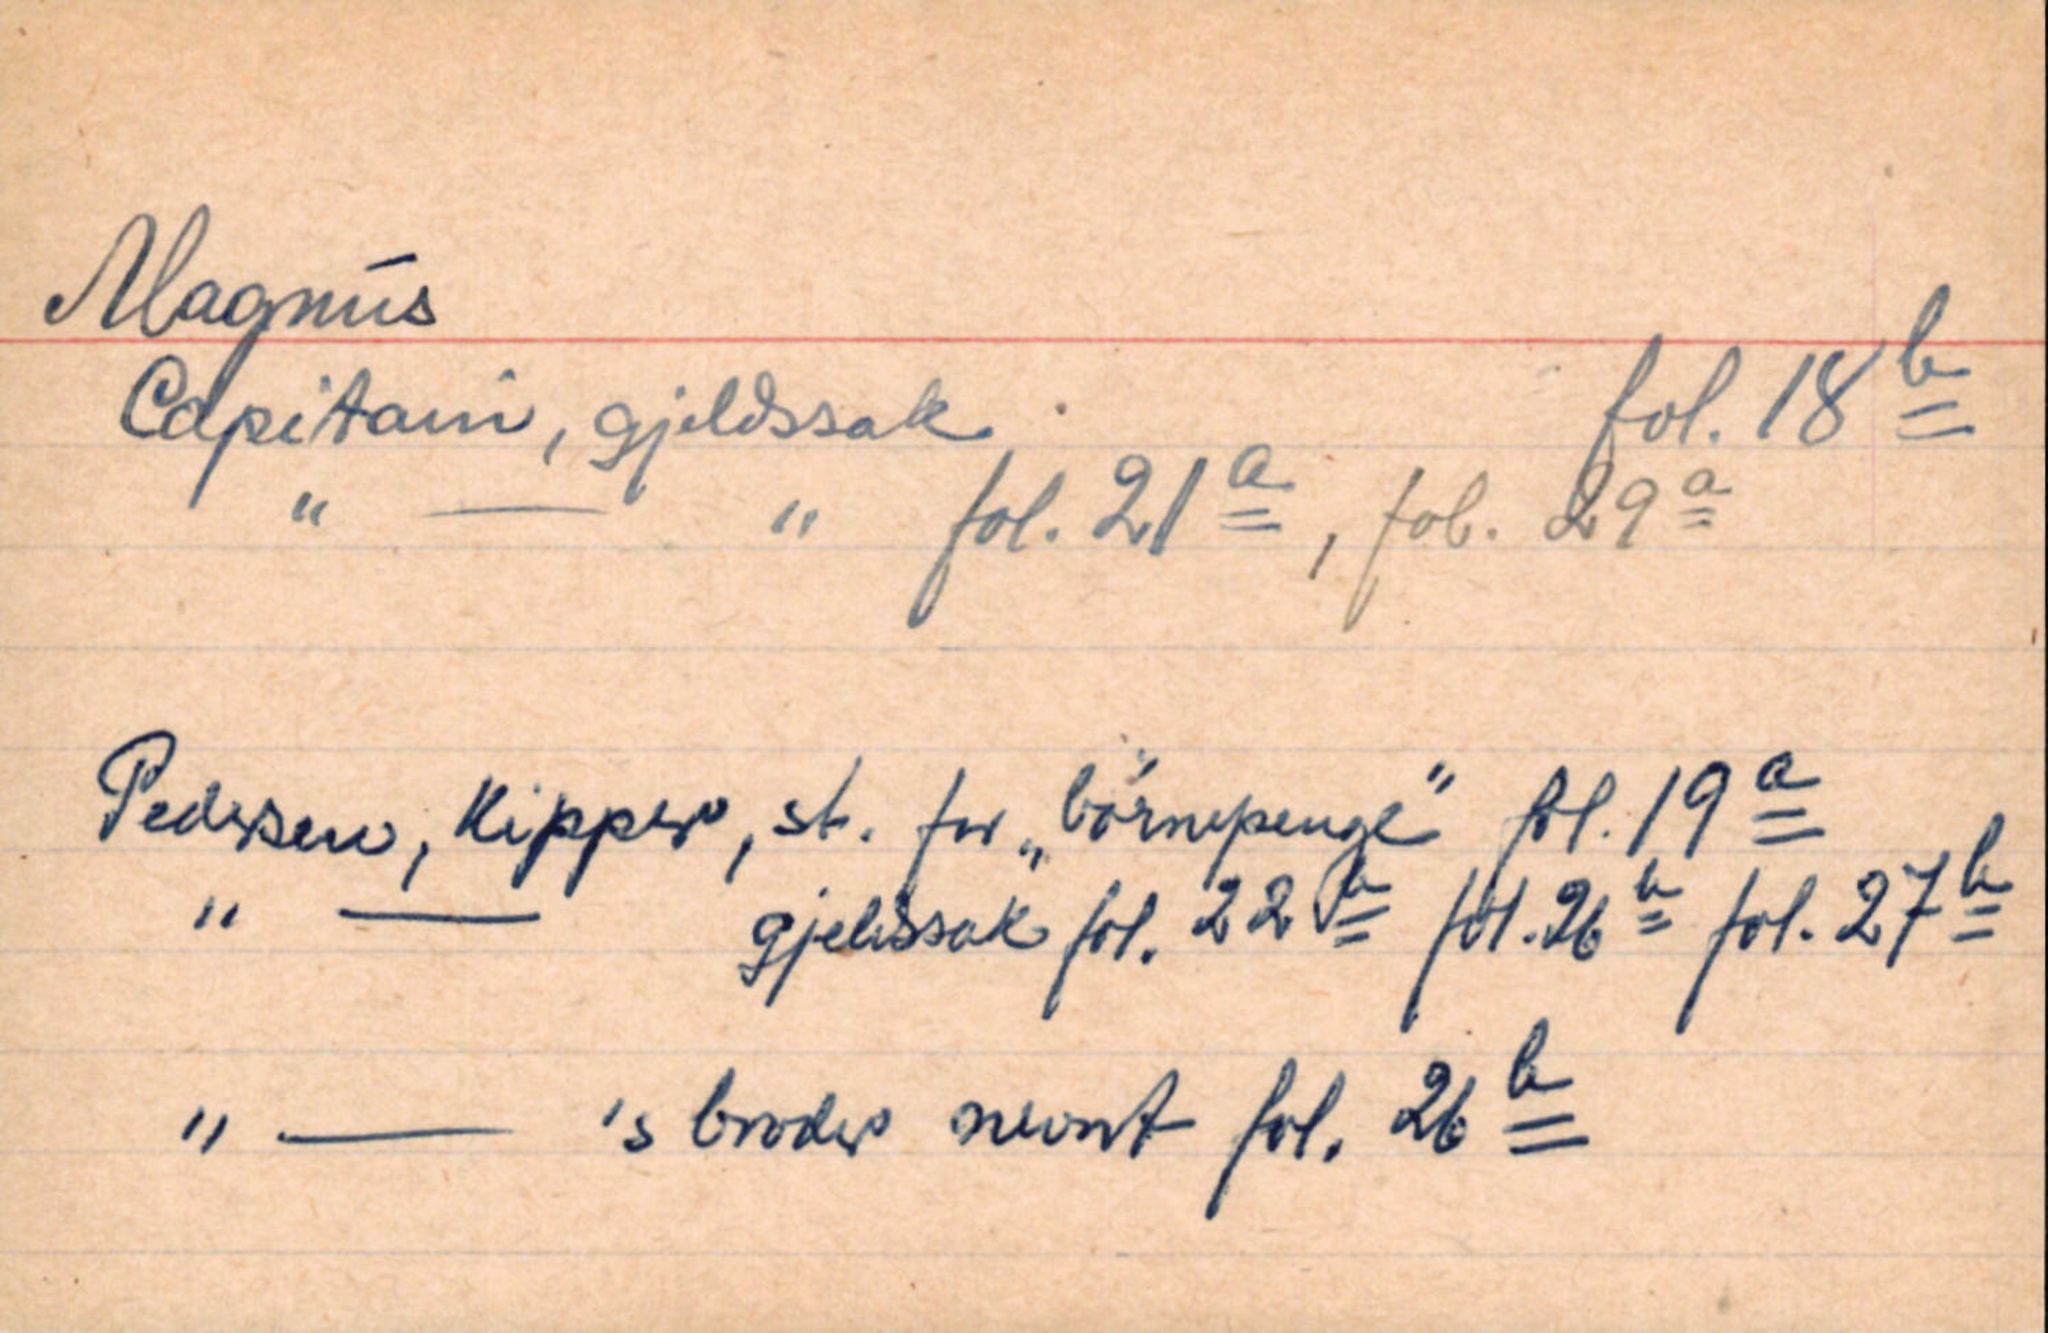 Magnus
Capitain, gjeldssak fol. 18 b
" — " fol. 21 a, fol. 29 a
Pedersen, Kipper, st. for „börnepenge" fol. 19 a
" — gjeldssak fol. 22 b fol. 26 b fol. 27 b
" — 's broder nevnt fol. 26 b